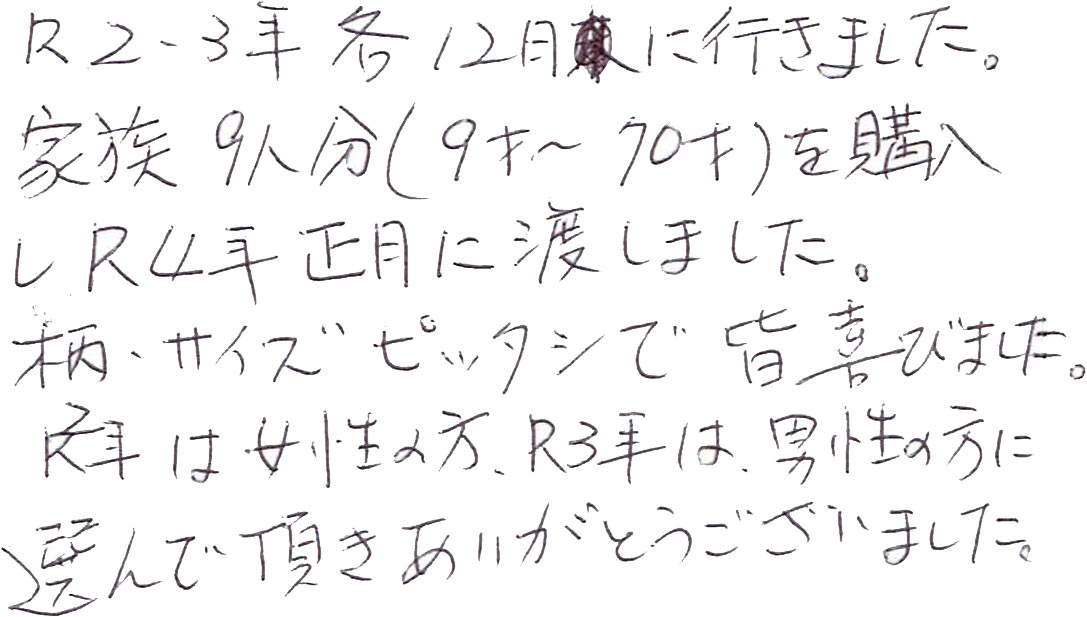 R2、3年各12月に行きました。
家族9人分(9才~70才)を購入
しR4年正月に渡しました。
柄、サイズピッタシで皆喜びました。
R2年は女性の方、R3年は、男性の方に
選んで頂きありがとうございました。